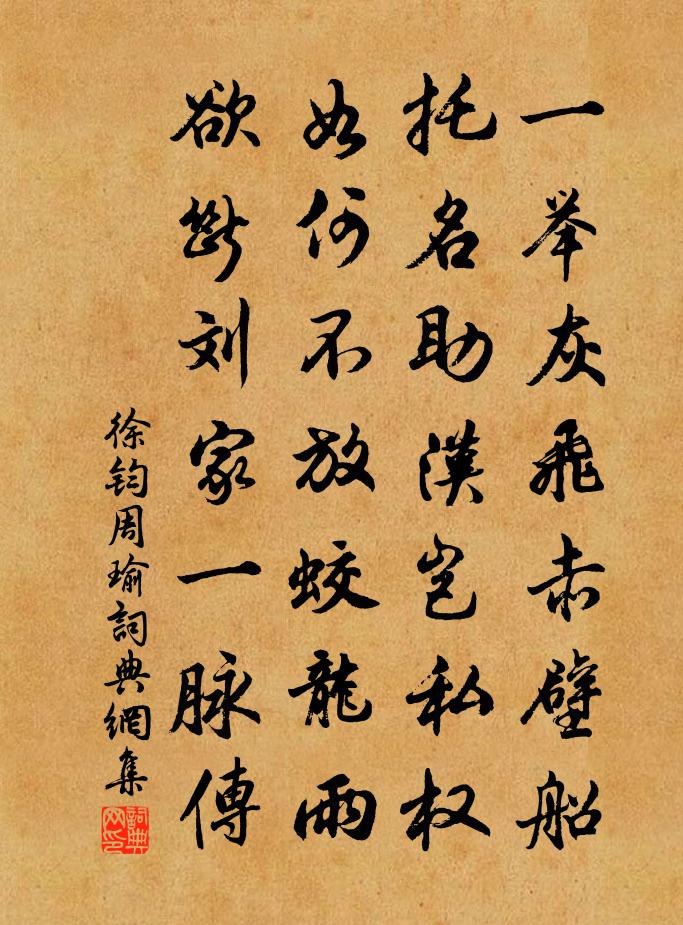 一举灰飛赤壁船
托名助漢岂私权
如何不放蛟龍雨
欲断刘家一脉傳
徐钧周瑜詞典網集
詞典网印